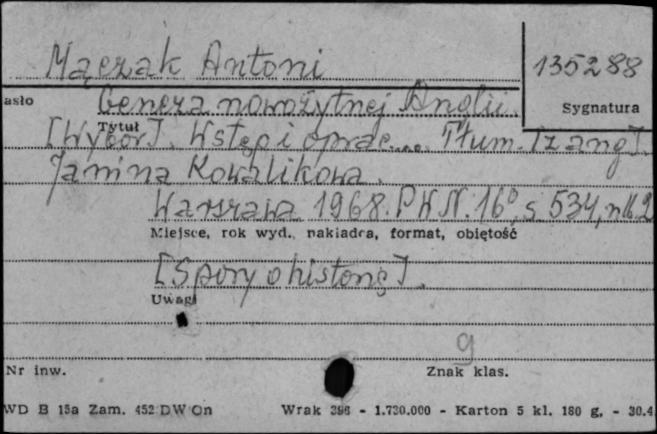 Mączak Antoni
135288
asło
Geneza nowożytnej Anglii.
Sygnatura
Tytuł
[Wybór]. Wstęp i oprac... Tłum. [z ang].
Janina Kowalikowa.
Warszawa 1968. PWN. 16°, s 534, nlb. 2
Miejsce, rok wyd., nakładca, format, objętość
[Spory o historię].
Uwagi
9
Nr inw.
Znak klas.
WD B 15a Zam. 452 DW On Wrak 396 - 1.730.000 - Karton 5 kl. 180 g. - 30.4